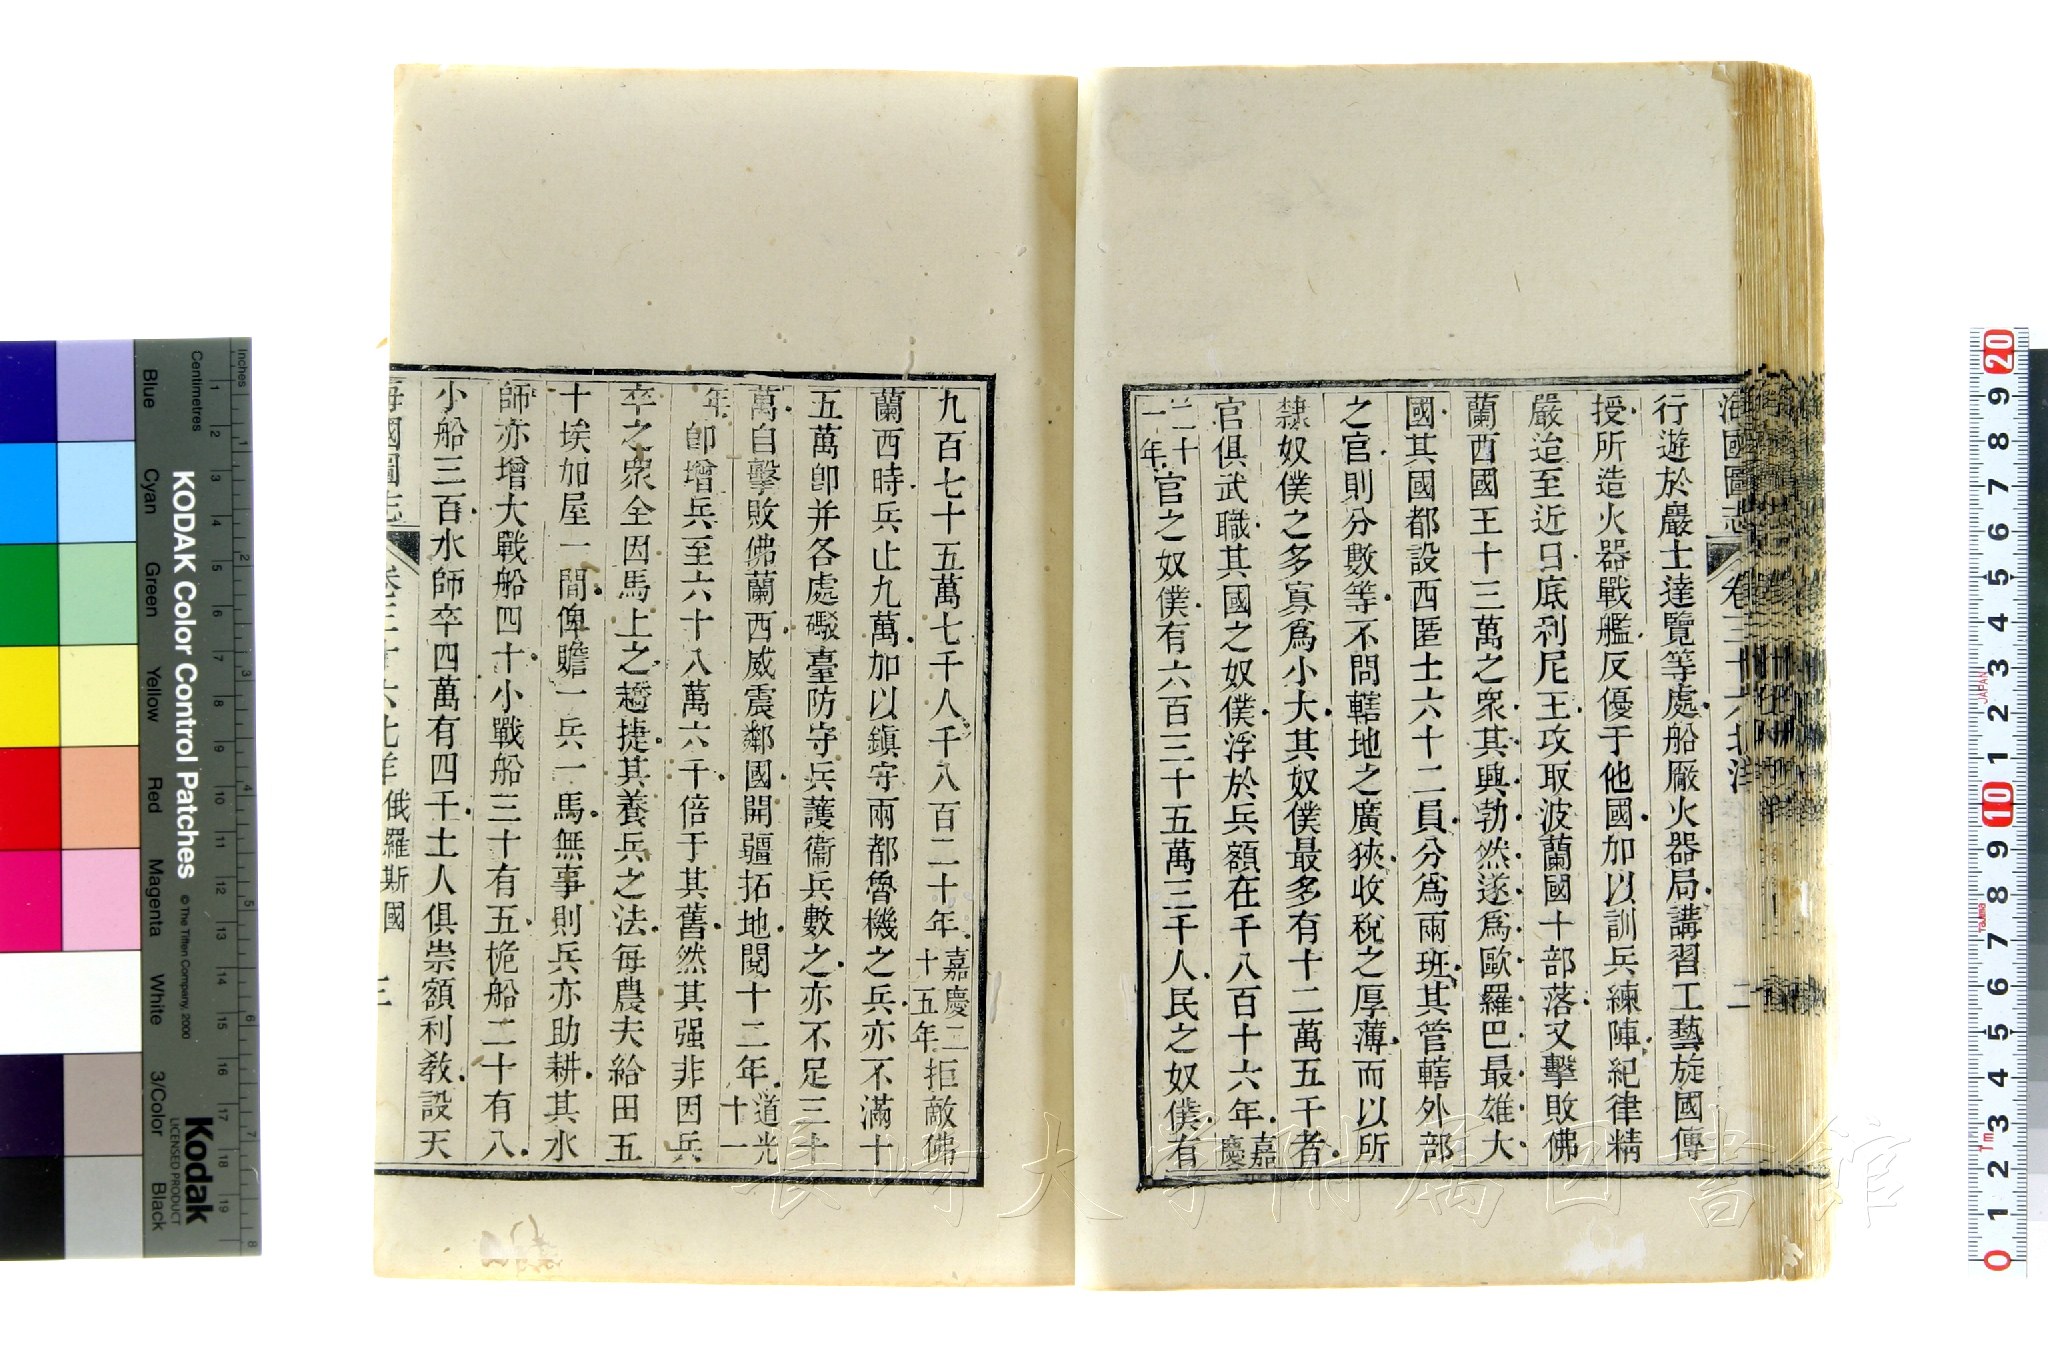 海國圖志 卷三十六 北洋 二
行遊於巖士達覽等處船廠火器局講習工藝旋國傳
授所造火器戰艦反優于他國加以訓兵練陣紀律精
嚴迨至近日底利尼王攻取波蘭國十部落又擊敗佛
蘭西國王十三萬之衆其興勃然遂爲歐羅巴最雄大
國其國都設西匿士六十二員分爲兩班其管轄外部
之官則分數等不問轄地之廣狹收稅之厚薄而以所
隸奴僕之多寡爲小大其奴僕最多有十二萬五千者
官俱武職其國之奴僕浮於兵額在千八百十六年嘉慶
二十一年官之奴僕有六百三十五萬三千人民之奴僕有
九百七十五萬七千人千八百二十年嘉慶二十五年拒敵佛
蘭西時兵止九萬加以鎮守兩都魯機之兵亦不滿十
五萬卽并各處礮臺防守兵護衞兵數之亦不足三十
萬自擊敗佛蘭西威震鄰國開疆拓地閱十二年道光十一
年卽增兵至六十八萬六千倍于其舊然其强非因兵
卒之衆全因馬上之趫捷其養兵之法每農夫給田五
十埃加屋一間俾贍一兵一馬無事則兵亦助耕其水
師亦增大戰船四十小戰船三十有五桅船二十有八
小船三百水師卒四萬有四千土人俱崇額利敎設天
海國圖志 卷三十六 北洋 俄羅斯國 三
KODAK Color Control Patches
© The Tiffen Company, 2000
Kodak
LICENSED PRODUCT
Inches
Centimetres
Blue Cyan Green Yellow Red Magenta White 3/Color Black
1 2 3 4 5 6 7 8 9 10 11 12 13 14 15 16 17 18 19
1 2 3 4 5 6 7 8
20 9 8 7 6 5 4 3 2 1 10 9 8 7 6 5 4 3 2 1 0
JAPAN
長崎大学附属図書館